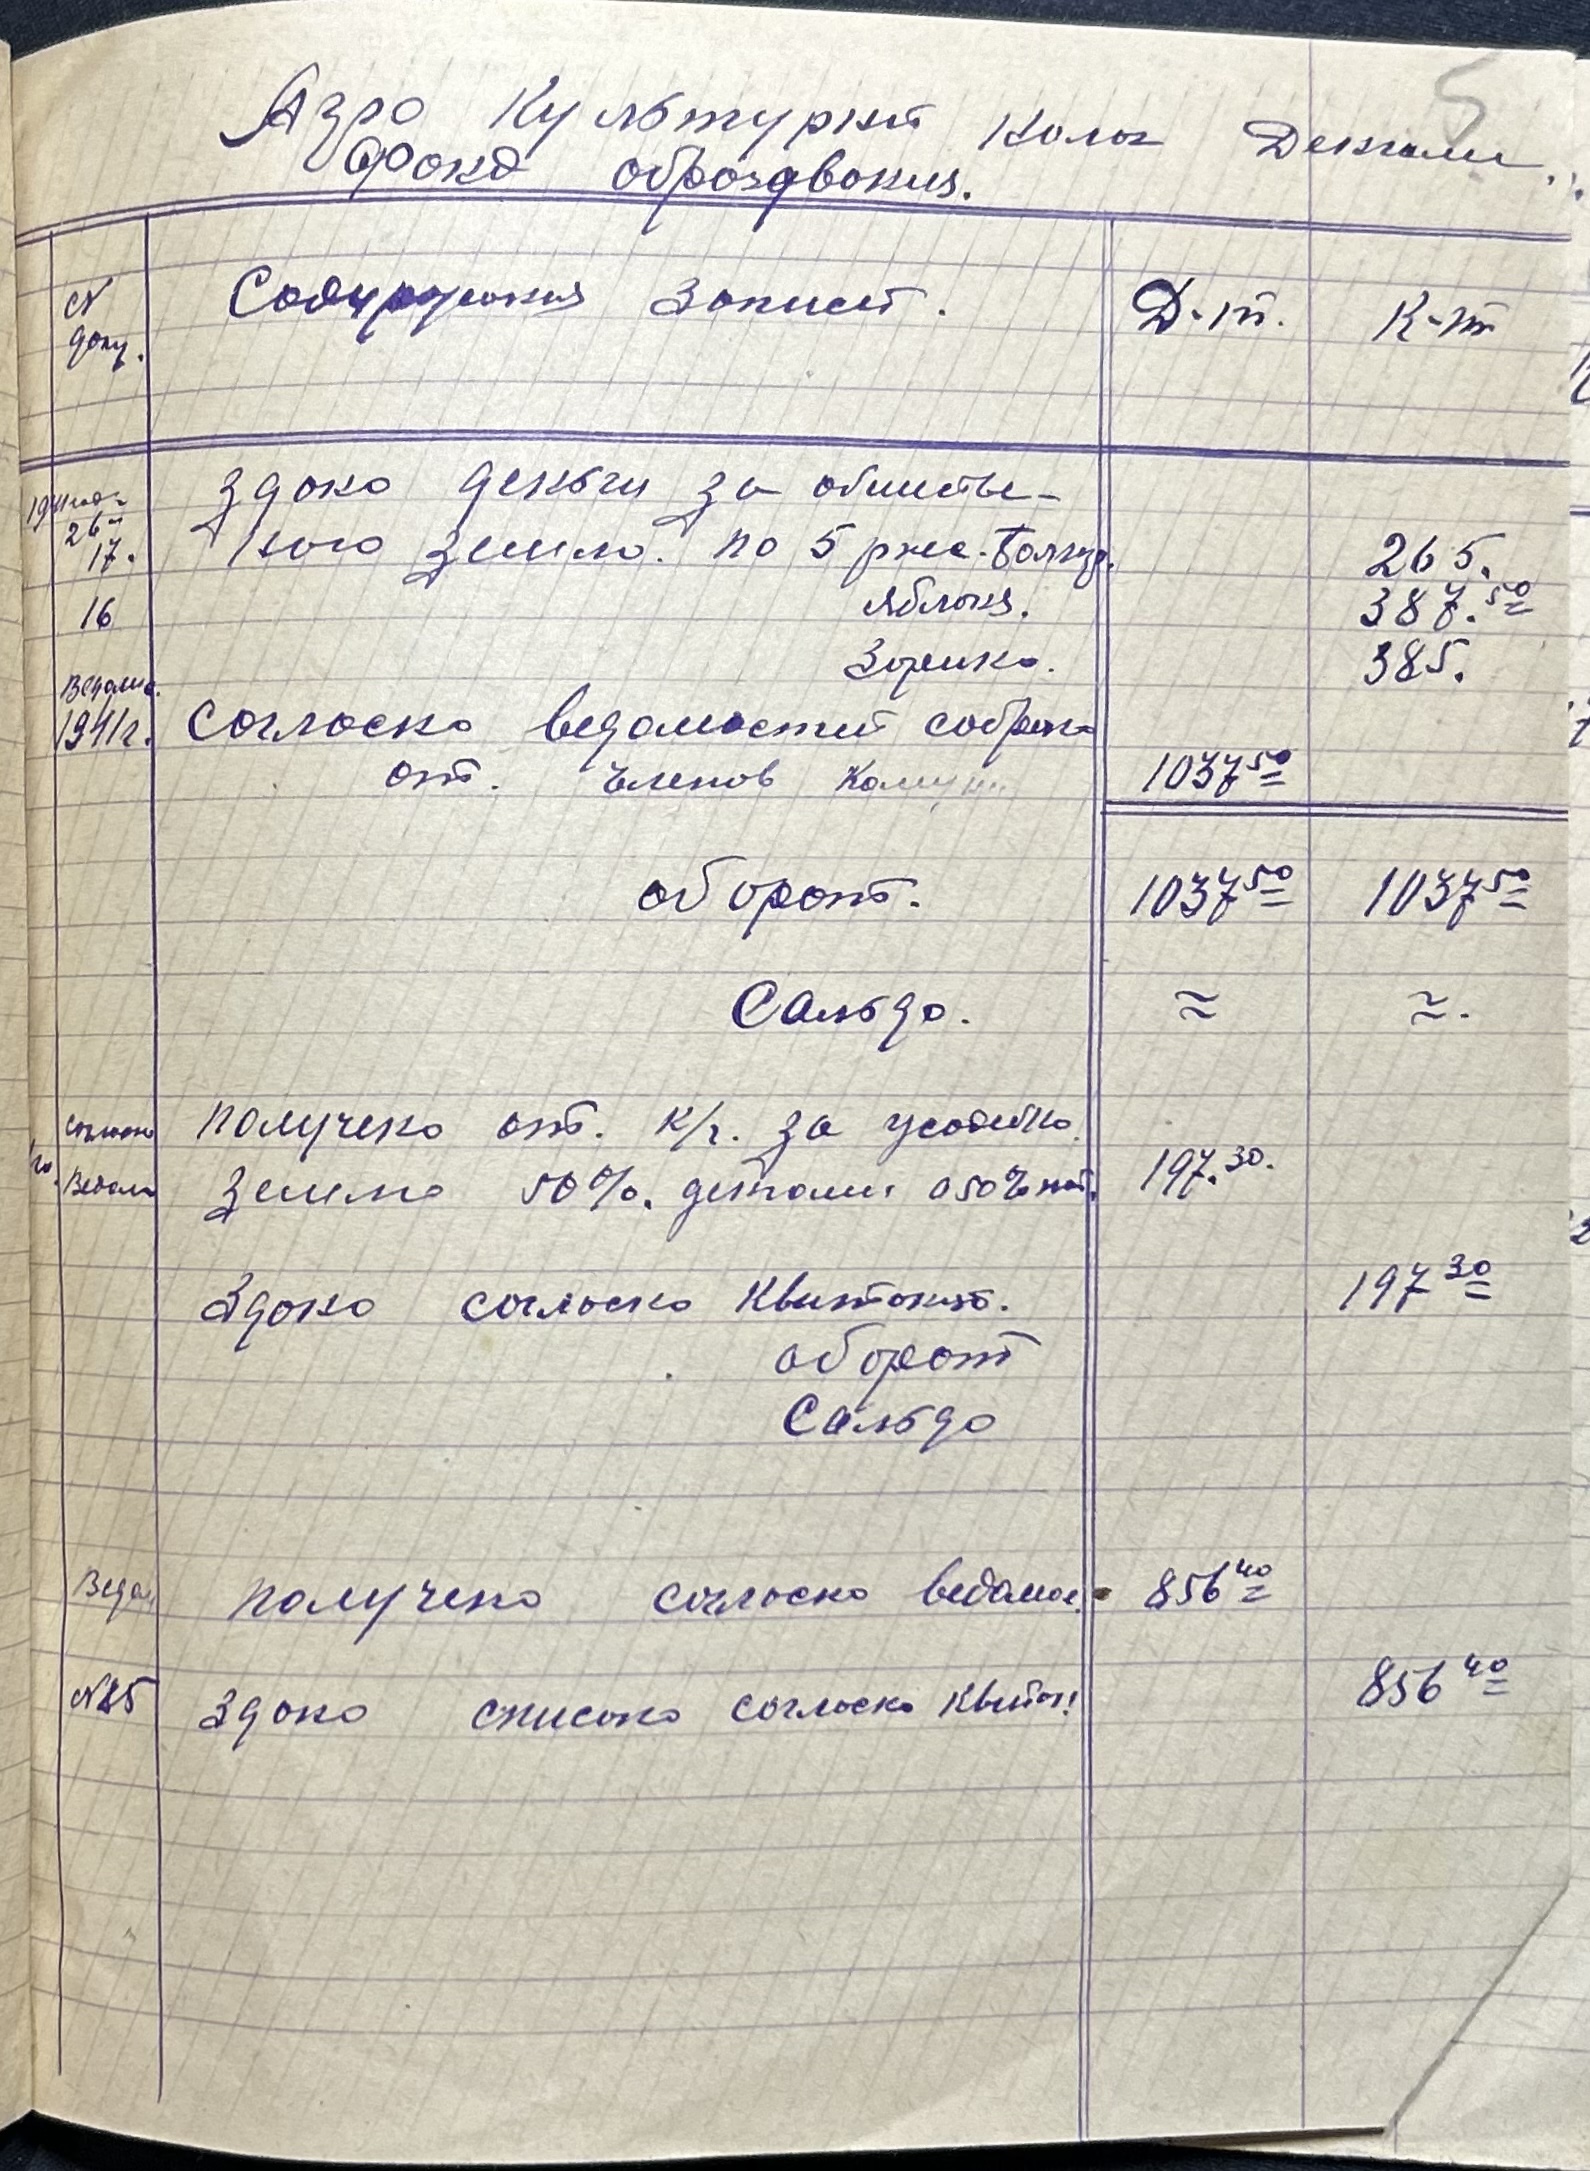 5
Агро Культурни Колох Деньгами
Фонд оброздвония.
N доку. Содиржония Записи. Д-т. К-т
1941 года
26-
17. Здоно деньги за обшистве-
ного землю. по 5 р Толкр. 265.
16 Яблоня. 387.50
Зорииха. 385.
Ведомо.
1941г. Согласно ведомостий собрано
от. Членов Комуни 1037 50
оборот. 1037 50 1037 50
Сальдо. ≈ ≈.
согласно получено от. к/г. за усодебно
Ведом землю 50%. детоми 197.30.
Здоно согласно Квитонит. 197 30
оборот
Сальдо
Ведом получено согласно ведомос. 856 40
N25 Здоно списоно согласно Квитон. 856 40